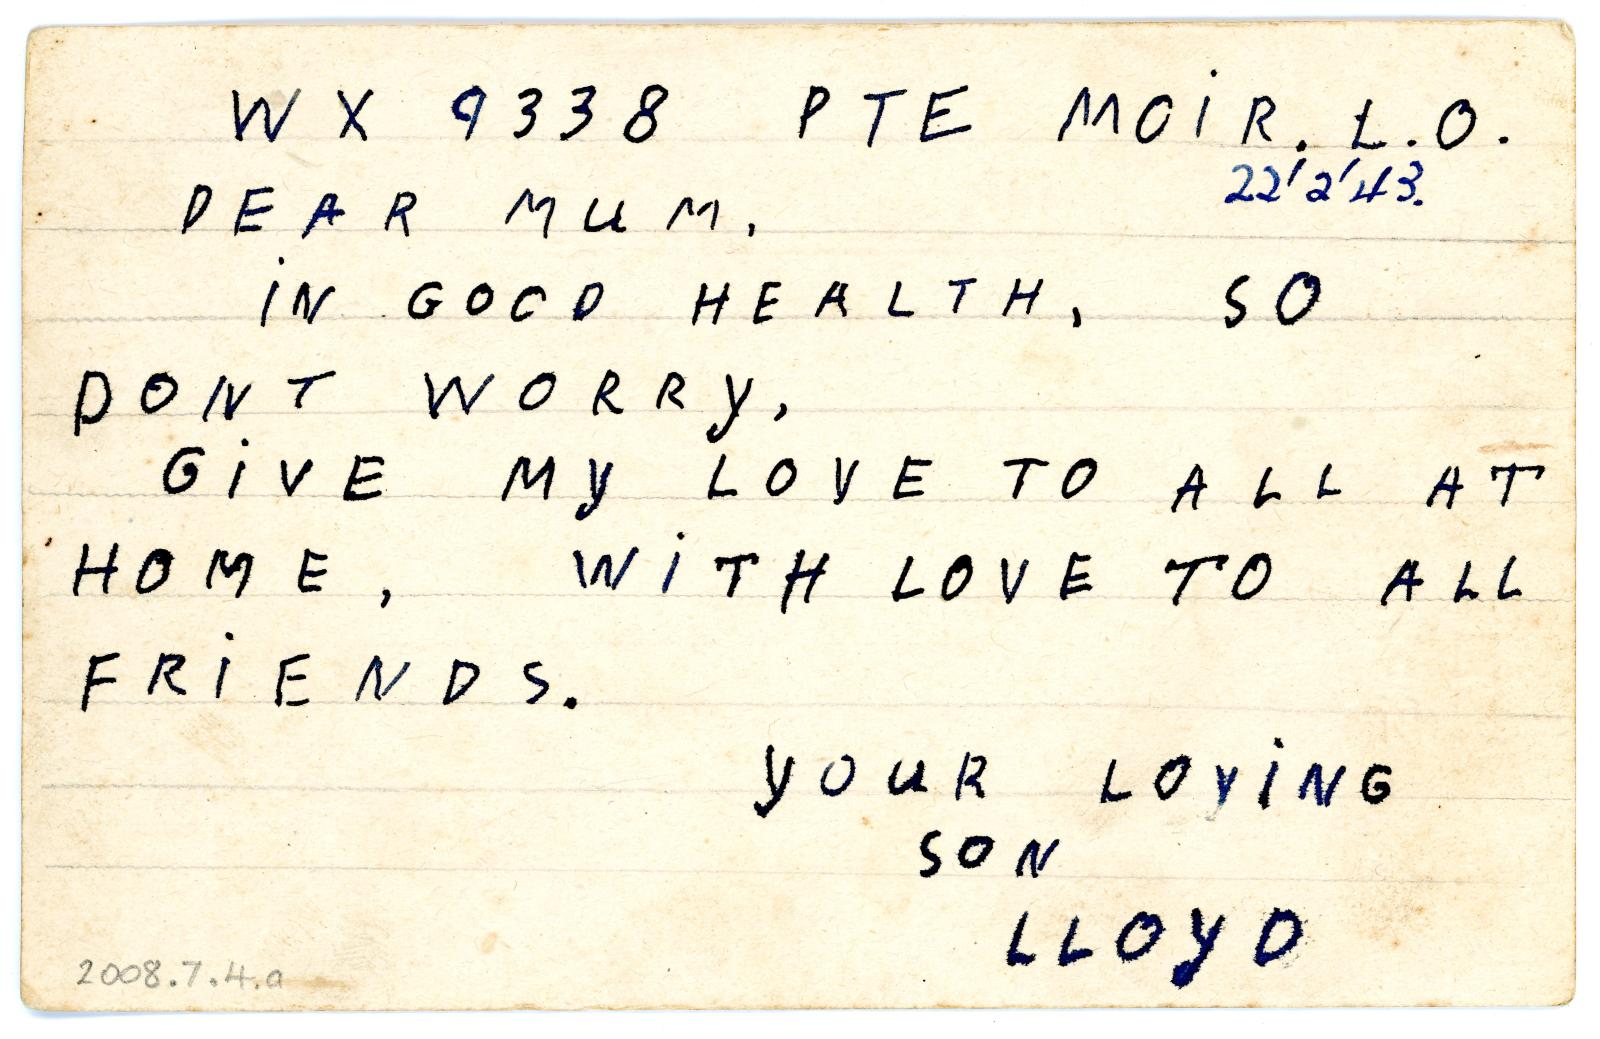 WX 9338 PTE MOIR. L.O.
22'2'43.
DEAR MUM,
IN GOOD HEALTH, SO
DONT WORRY,
GIVE MY LOVE TO ALL AT
HOME, WITH LOVE TO ALL
FRIENDS.
YOUR LOVING
SON
LLOYD
2008.7.4.a